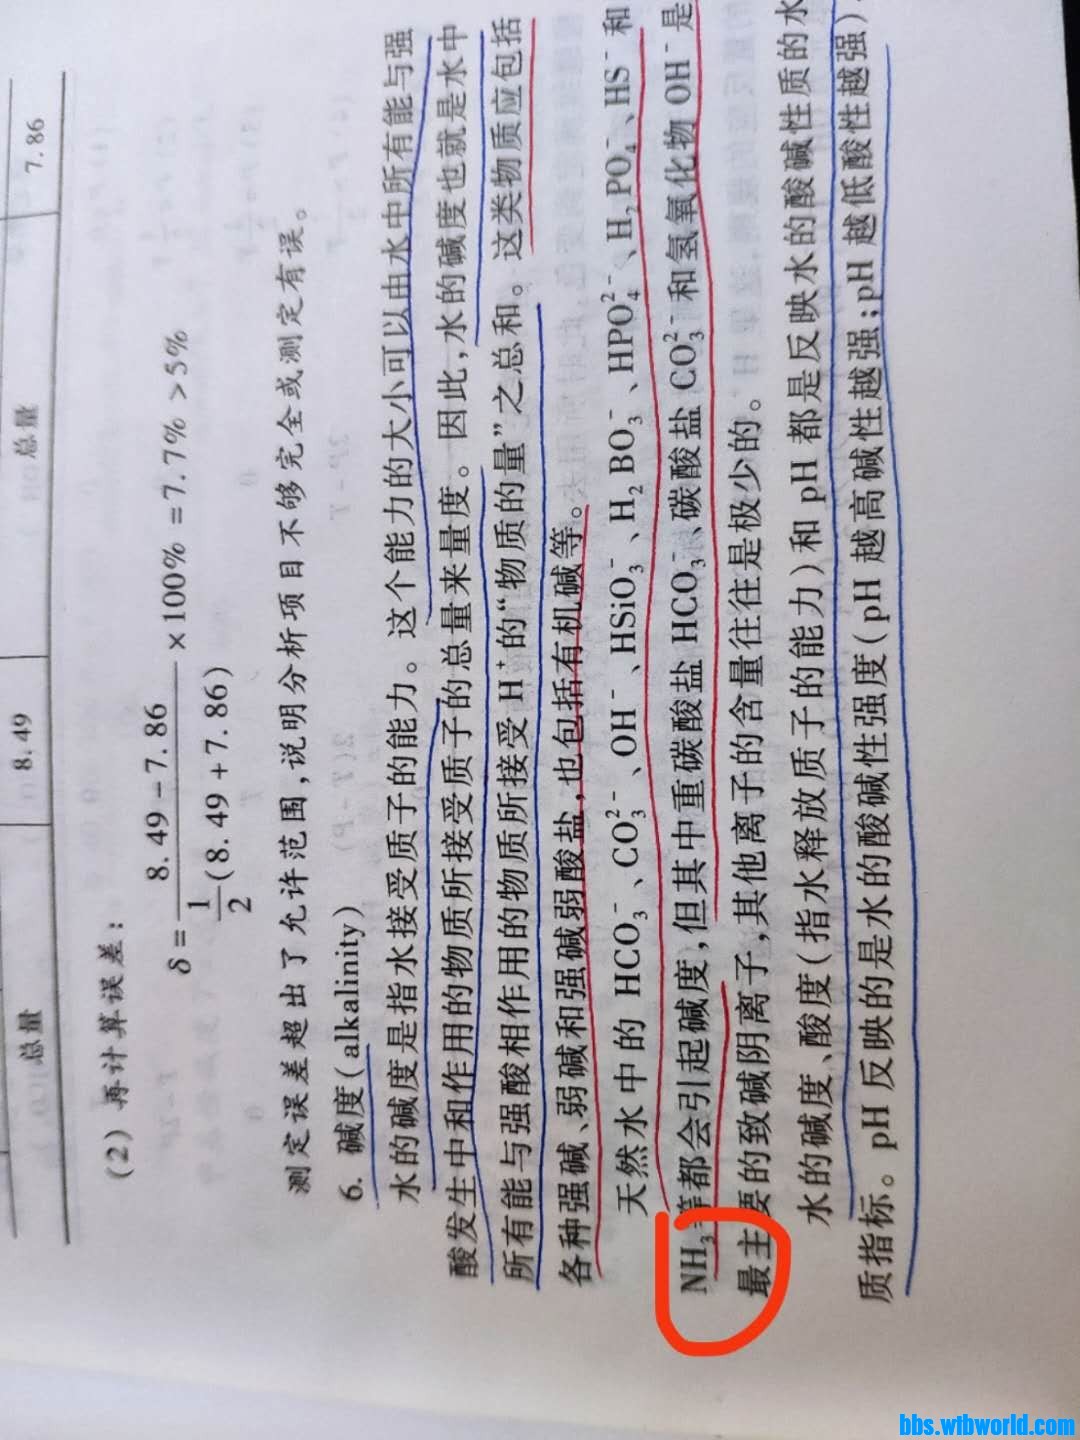 总量 8.49 总量 7.86
(2) 再计算误差:
δ = \frac{8.49 - 7.86}{\frac{1}{2}(8.49 + 7.86)} × 100% = 7.7% > 5%
测定误差超出了允许范围,说明分析项目不够完全或测定有误。
6. 碱度(alkalinity)
水的碱度是指水接受质子的能力。这个能力的大小可以由水中所有能与强
酸发生中和作用的物质所接受质子的总量来量度。因此,水的碱度也就是水中
所有能与强酸相作用的物质所接受 H⁺ 的“物质的量”之总和。这类物质应包括
各种强碱、弱碱和强碱弱酸盐,也包括有机碱等。
天然水中的 HCO₃⁻、CO₃²⁻、OH⁻、HSiO₃⁻、H₂BO₃⁻、HPO₄²⁻、H₂PO₄⁻、HS⁻ 和
NH₃ 等都会引起碱度,但其中重碳酸盐 HCO₃⁻、碳酸盐 CO₃²⁻ 和氢氧化物 OH⁻ 是
最主要的致碱阴离子,其他离子的含量往往是极少的。
水的碱度、酸度(指水释放质子的能力)和 pH 都是反映水的酸碱性质的水
质指标。pH 反映的是水的酸碱性强度(pH 越高碱性越强;pH 越低酸性越强)
bbs.wibworld.com